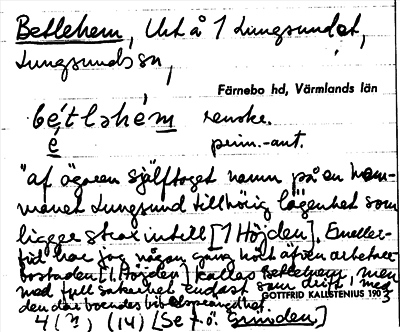 Betlehem, Utt å 1 Lungsundet,
Lungsunds sn,
Färnebo hd, Värmlands län
bétləhém
é
prim.-ant.
"af ägaren själftaget namn på en hem-
manet Lungsund tillhörig lägenhet som
ligger strax intill [1 Höjden]. Emeller-
tid har jag någon gång hört äfven arbetare
bostaden [1 Höjden] kallas Betlehem, men
med full säkerhet endast som drift med
den där boendes
GOTTFRID KALLSTENIUS 1903
4 (n), (14) (Se f.ö.